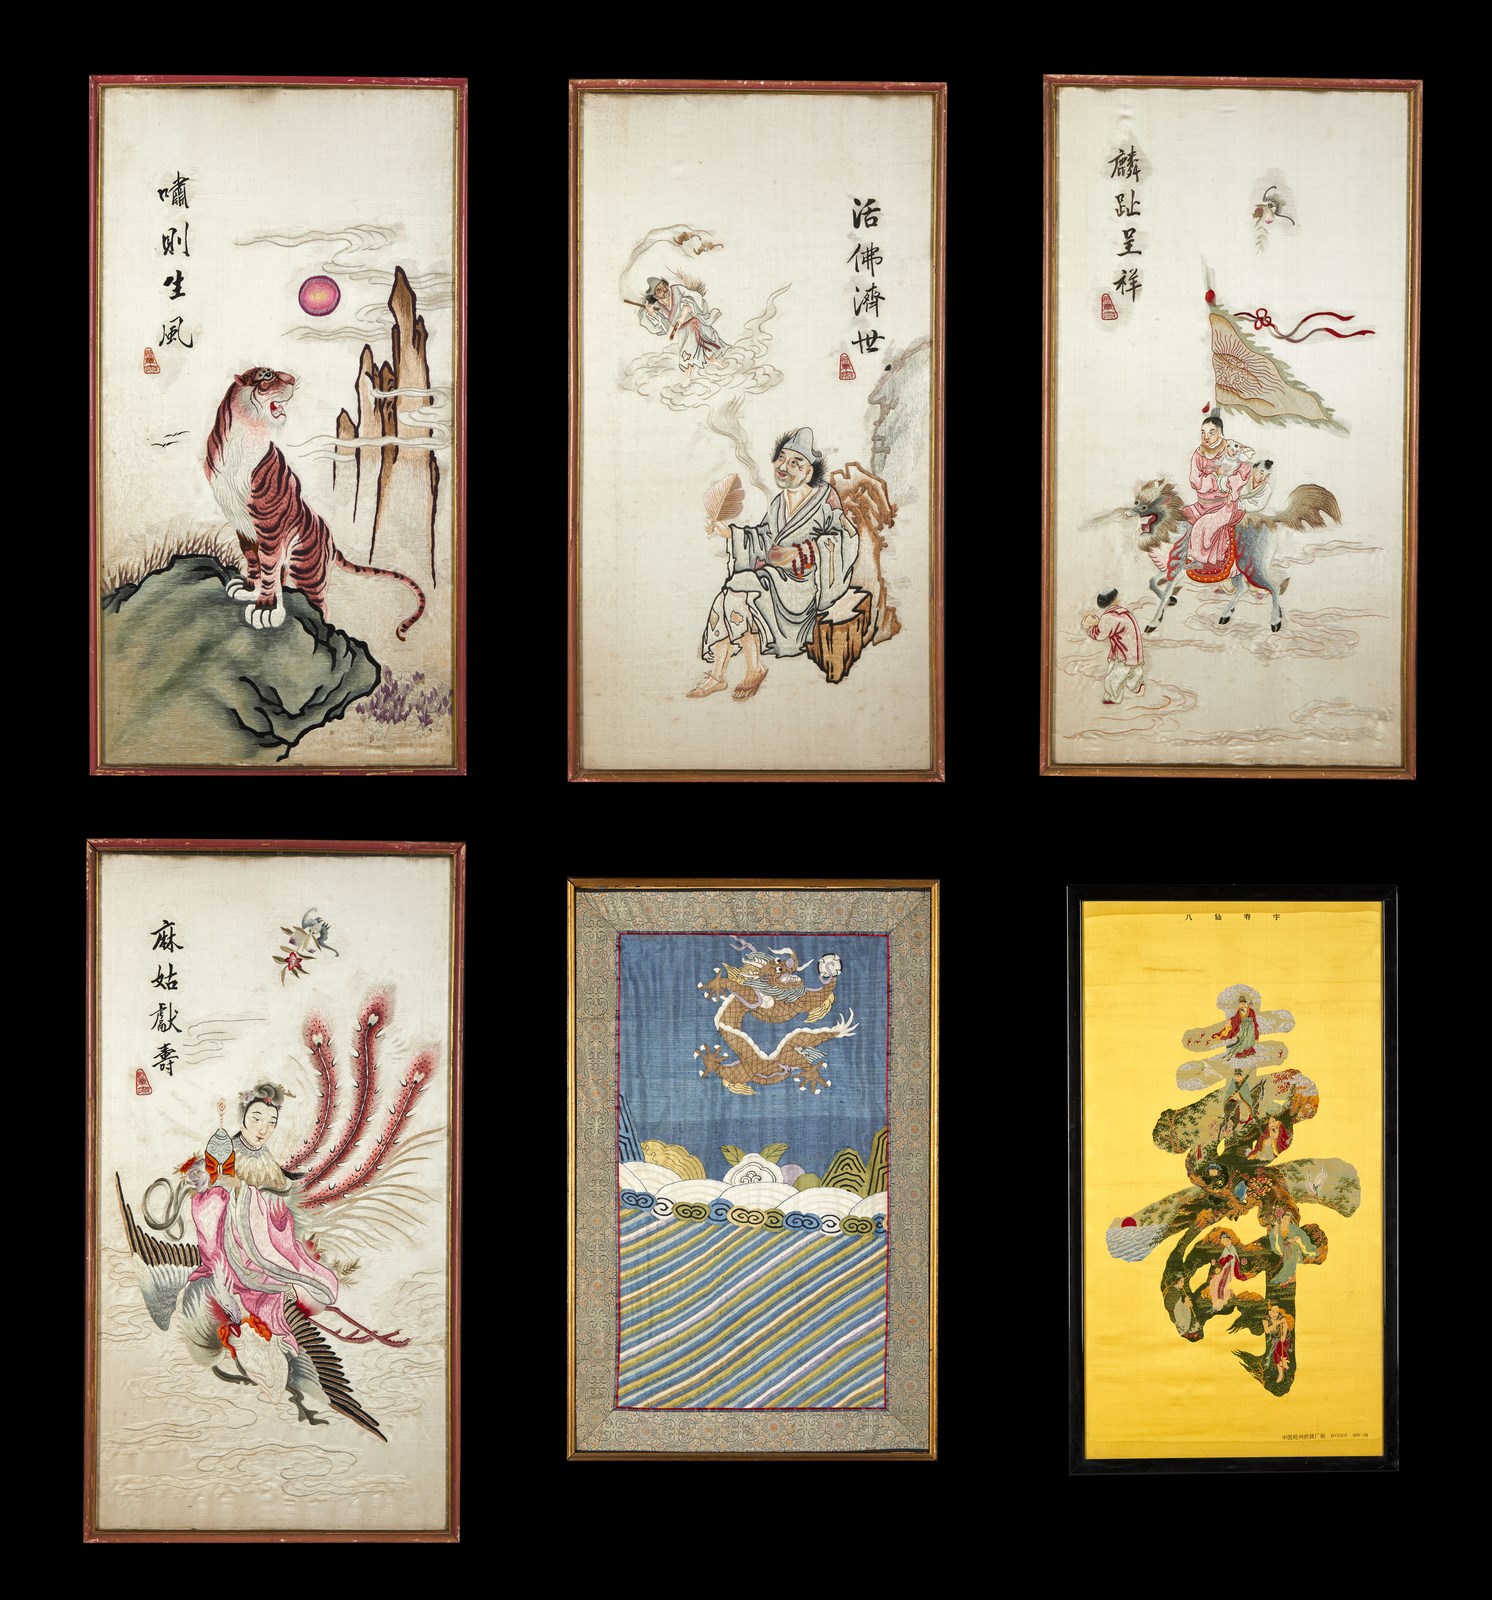 嘯則生風
活佛濟世
麟趾呈祥
麻姑獻壽
八仙寿字
中国杭州织锦厂制